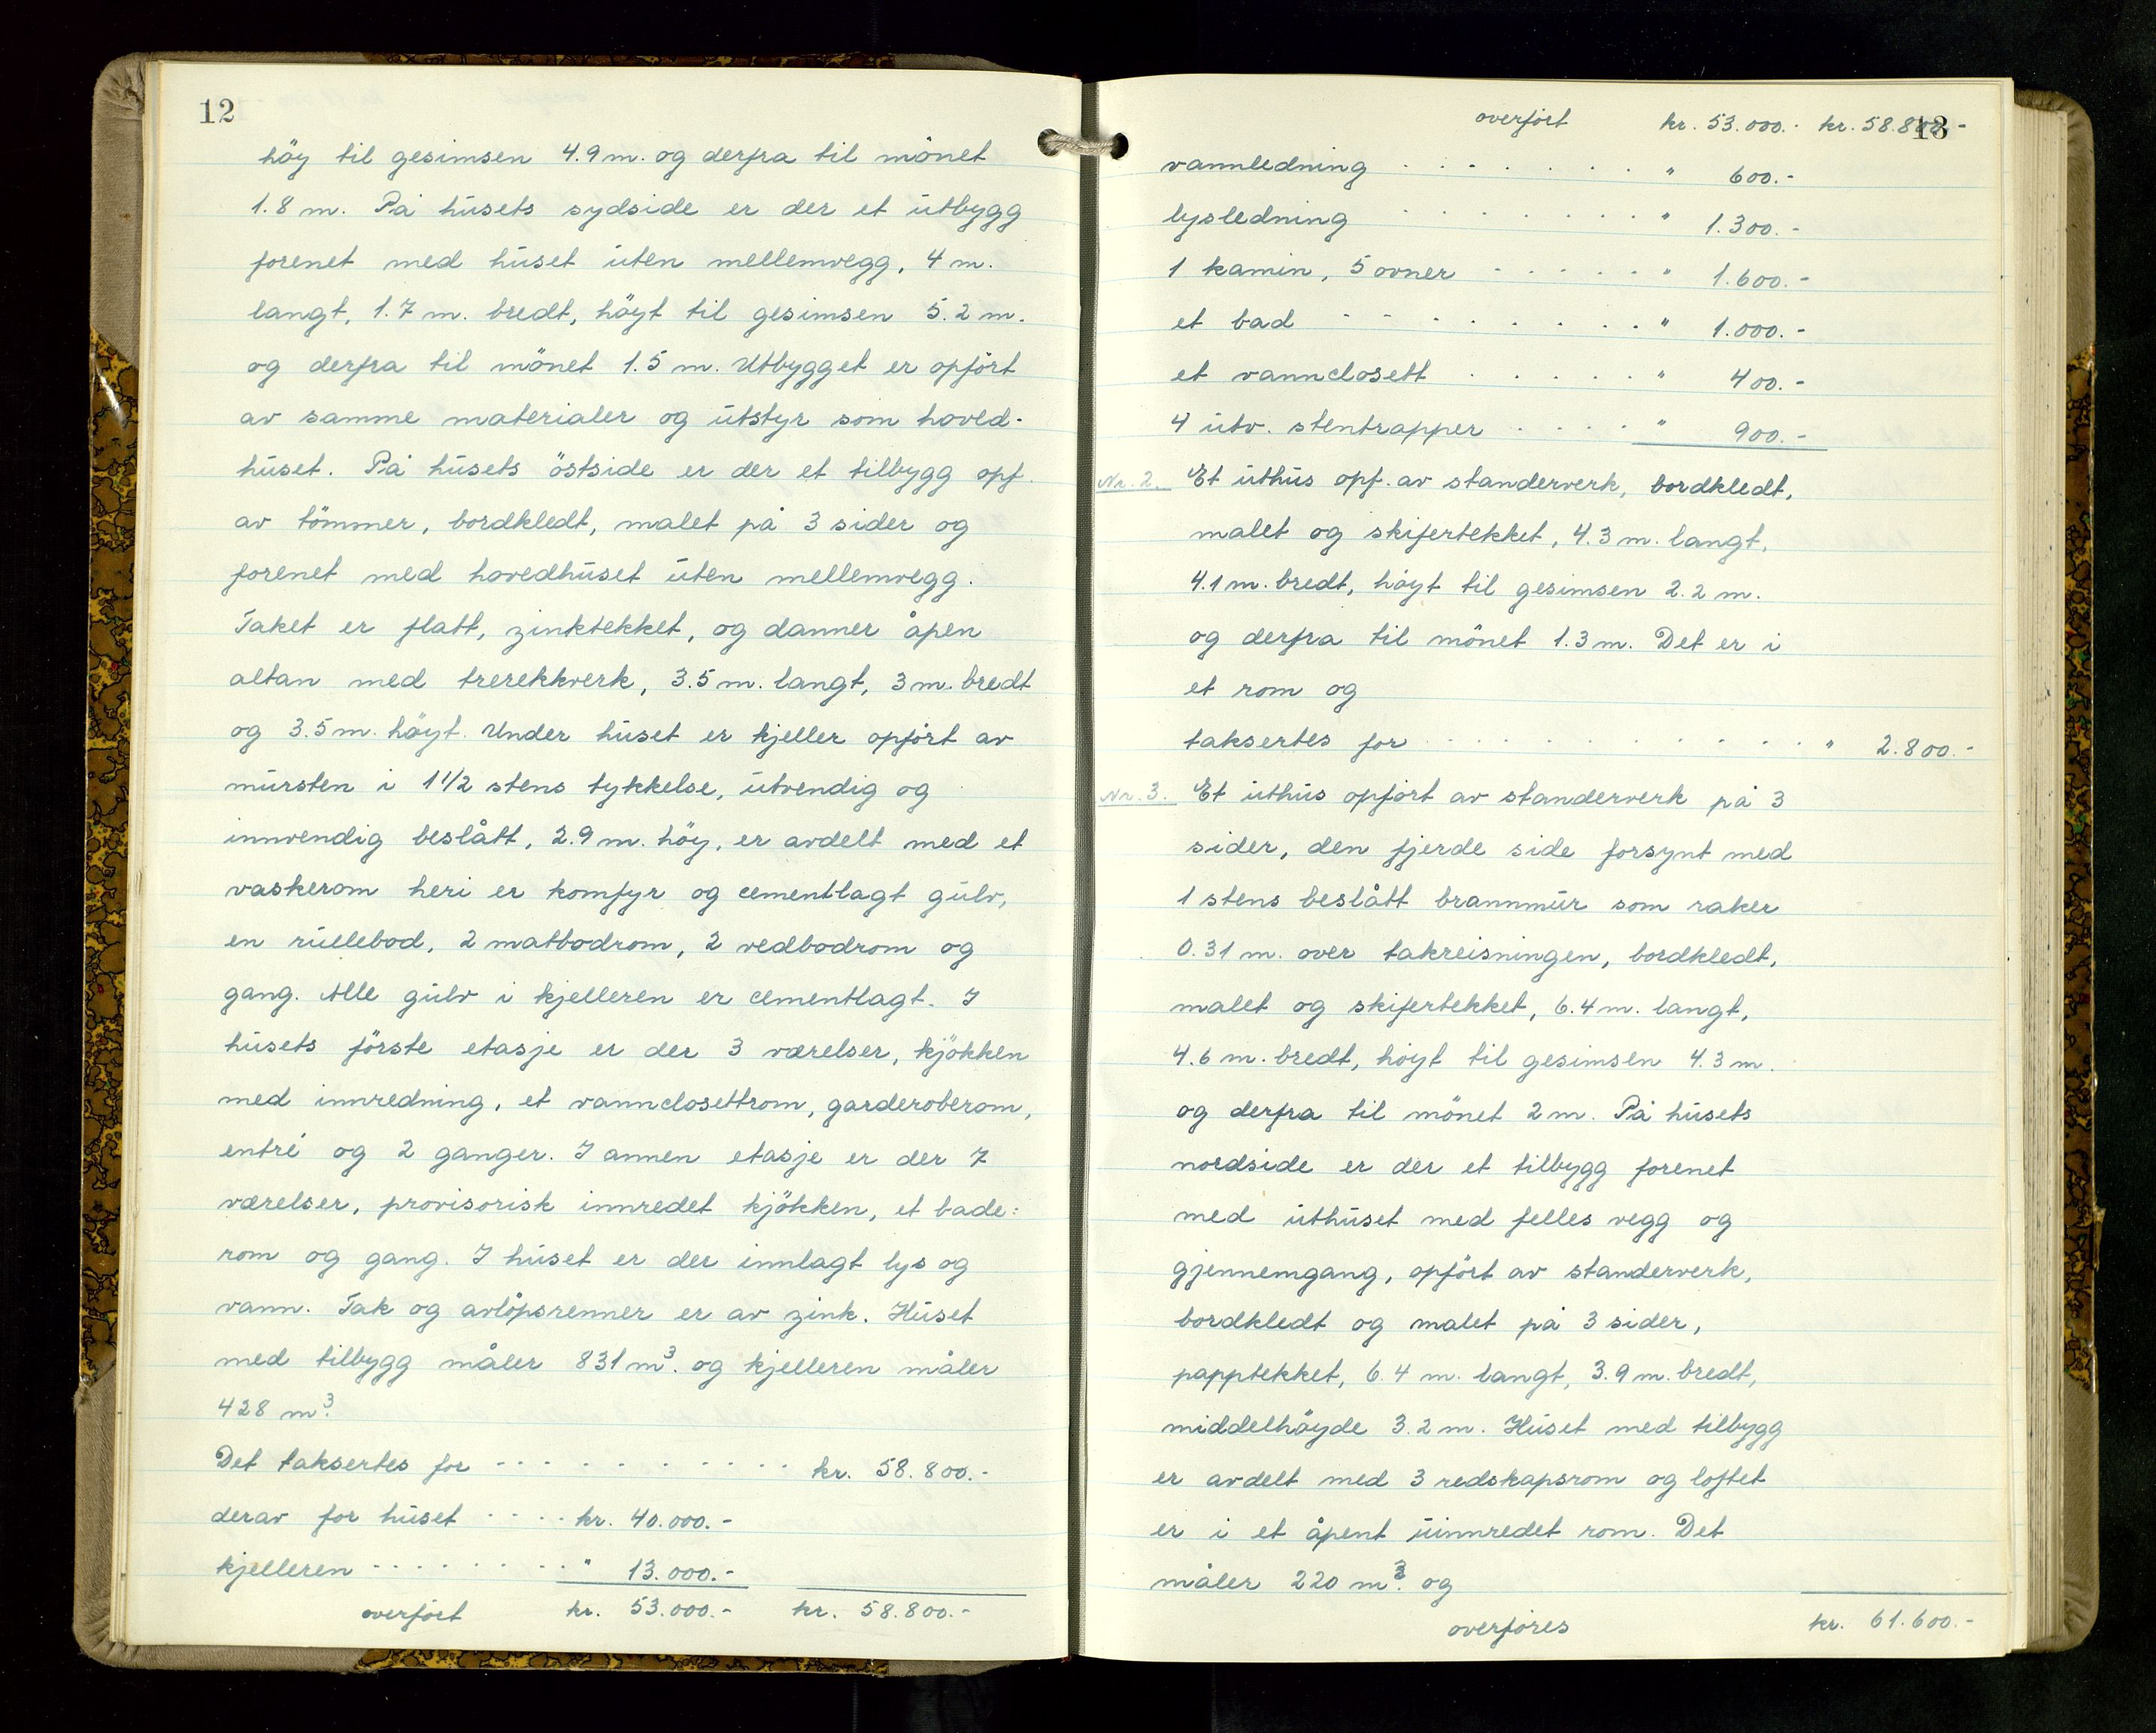 12
höy til gesimsen 4.9 m. og derfra til mönet
1.8 m. På húsets sydside er der et útbygg
forenet med húset úten mellemvegg, 4 m.
langt, 1.7 m. bredt, höyt til gesimsen 5.2 m.
og derfra til mönet 1.5 m. Utbygget er opfört
av samme materialer og útstyr som hoved-
húset. På húsets östside er der et tilbygg opf.
av tömmer, bordkledt, malet på 3 sider og
forenet med hovedhúset úten mellemvegg.
Taket er flatt, zinktekket, og danner åpen
altan med trerekkverk, 3.5 m. langt, 3 m. bredt
og 3.5 m. höyt. Under húset er kjeller opfört av
múrsten i 1 1/2 stens tykkelse, útvendig og
innvendig beslått, 2.9 m. höy, er avdelt med et
vaskerom heri er komfyr og cementlagt gúlv,
en rúllebod, 2 matbodrom, 2 vedbodrom og
gang. Alle gúlv i kjelleren er cementlagt. I
húsets förste etasje er der 3 værelser, kjökken
med innredning, et vannclosettrom, garderoberom,
entré og 2 ganger. I annen etasje er der 7
værelser, provisorisk innredet kjökken, et bade:
rom og gang. I húset er der innlagt lys og
vann. Tak og avlöpsrenner er av zink. Húset
med tilbygg måler 831 m³. og kjelleren måler
428 m³.
Det taksertes for - - - - - - - - - - kr. 58.800.-
derav for húset - - - - kr. 40.000.-
kjelleren - - - - - - - - " 13.000.-
overfört kr. 53.000.- kr. 58.800.-
13
overfört kr. 53.000.- kr. 58.800.-
vannledning - - - - - - - " 600.-
lysledning - - - - - - - " 1.300.-
1 kamin, 5 ovner - - - - - - " 1.600.-
et bad - - - - - - - - " 1.000.-
et vannclosett - - - - - " 400.-
4 útv. stentrapper - - - - " 900.-
Nr. 2. Et úthús opf. av standerverk, bordkledt,
malet og skifertekket, 4.3 m. langt,
4.1 m. bredt, höyt til gesimsen 2.2 m.
og derfra til mönet 1.3 m. Det er i
et rom og
taksertes for - - - - - - - - - - - - " 2.800.-
Nr. 3. Et úthús opfört av standerverk på 3
sider, den fjerde side forsynt med
1 stens beslått brannmúr som raker
0.31 m. over takreisningen, bordkledt,
malet og skifertekket, 6.4 m. langt,
4.6 m. bredt, höyt til gesimsen 4.3 m.
og derfra til mönet 2 m. På húsets
nordside er der et tilbygg forenet
med úthúset med felles vegg og
gjennemgang, opfört av standerverk,
bordkledt og malet på 3 sider,
papptekket, 6.4 m. langt, 3.9 m. bredt,
middelhöyde 3.2 m. Húset med tilbygg
er avdelt med 3 redskapsrom og loftet
er i et åpent úinnredet rom. Det
måler 220 m³. og
overföres kr. 61.600.-